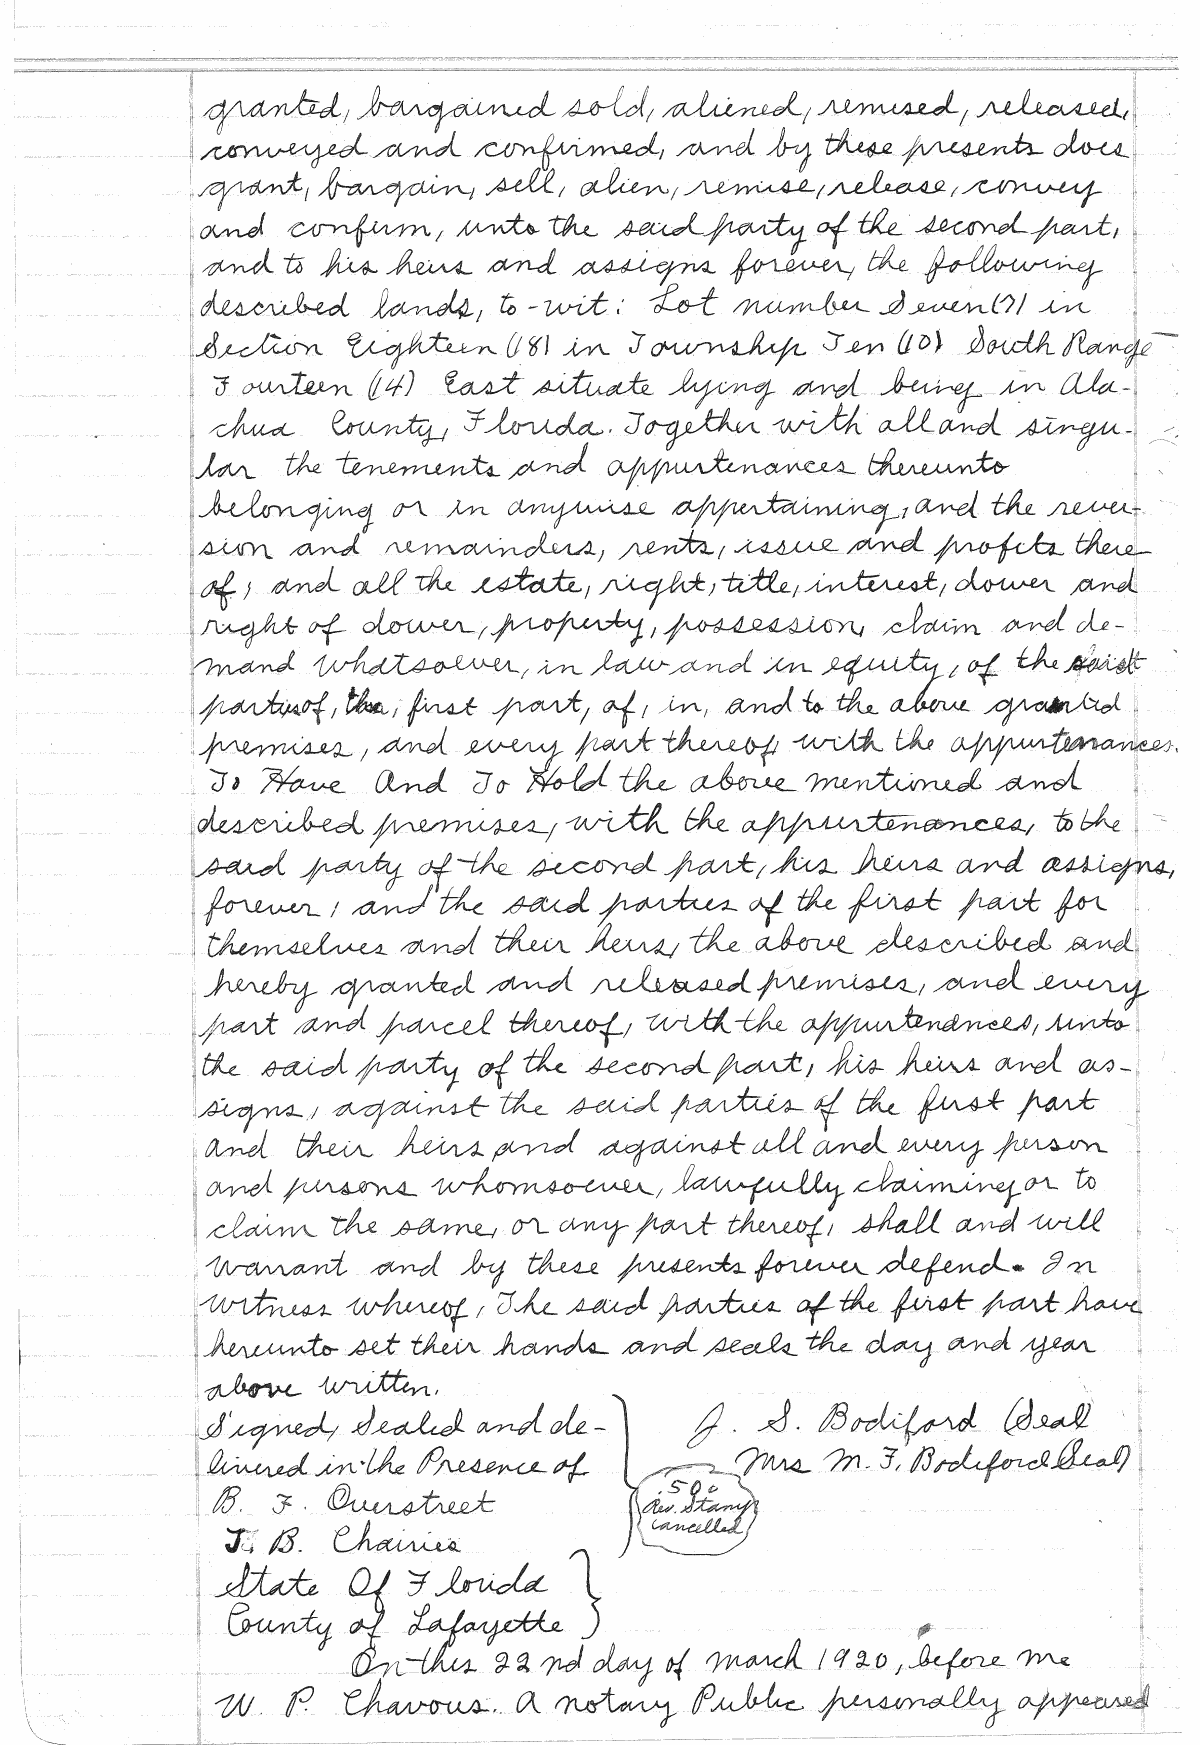 granted, bargained sold, aliened, remised, released,
conveyed and confirmed, and by these presents does
grant, bargain, sell, alien, remise, release, convey
and confirm, unto the said party of the second part,
and to his heirs and assigns forever, the following
described lands, to-wit: Lot number Seven (7) in
Section Eighteen (18) in Township Ten (10) South Range
Fourteen (14) East situate lying and being in Ala-
chua County, Florida. Together with all and singu-
lar the tenements and appurtenances thereunto
belonging or in anywise appertaining, and the rever-
sion and remainders, rents, issue and profits there
of; and all the estate, right, title, interest, dower and
right of dower, property, possession, claim and de-
mand whatsoever, in law and in equity, of the said
parties of, the, first part, of, in, and to the above granted
premises, and every part thereof, with the appurtenances.
To Have And To Hold the above mentioned and
described premises, with the appurtenances, to the
said party of the second part, his heirs and assigns,
forever; and the said parties of the first part for
themselves and their heirs, the above described and
hereby granted and released premises, and every
part and parcel thereof, with the appurtenances, unto
the said party of the second part, his heirs and as-
signs, against the said parties of the first part
and their heirs and against all and every person
and persons whomsoever, lawfully claiming or to
claim the same, or any part thereof, shall and will
warrant and by these presents forever defend. In
witness whereof, The said parties of the first part have
hereunto set their hands and seals the day and year
above written.
Signed, Sealed and de- J. S. Bodiford (Seal)
livered in the Presence of Mrs M. F. Bodiford (Seal)
B. F. Overstreet 50c Rev. Stamp cancelled
T. B. Chairies
State Of Florida
County of Lafayette
On this 22nd day of March 1920, before me
W. P. Chavous. A notary Public personally appeared